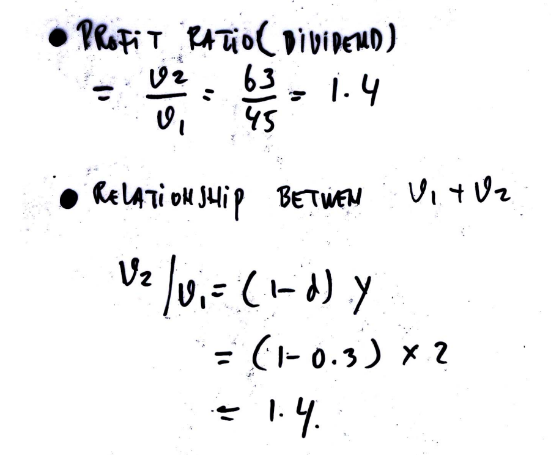 ● PROFIT RATIO( DIVIDEND)
= v2/v1 = 63/45 = 1.4
● RELATIONSHIP BETWEN v1 + v2
v2/v1 = (1-d) y
= (1-0.3) x 2
= 1.4.